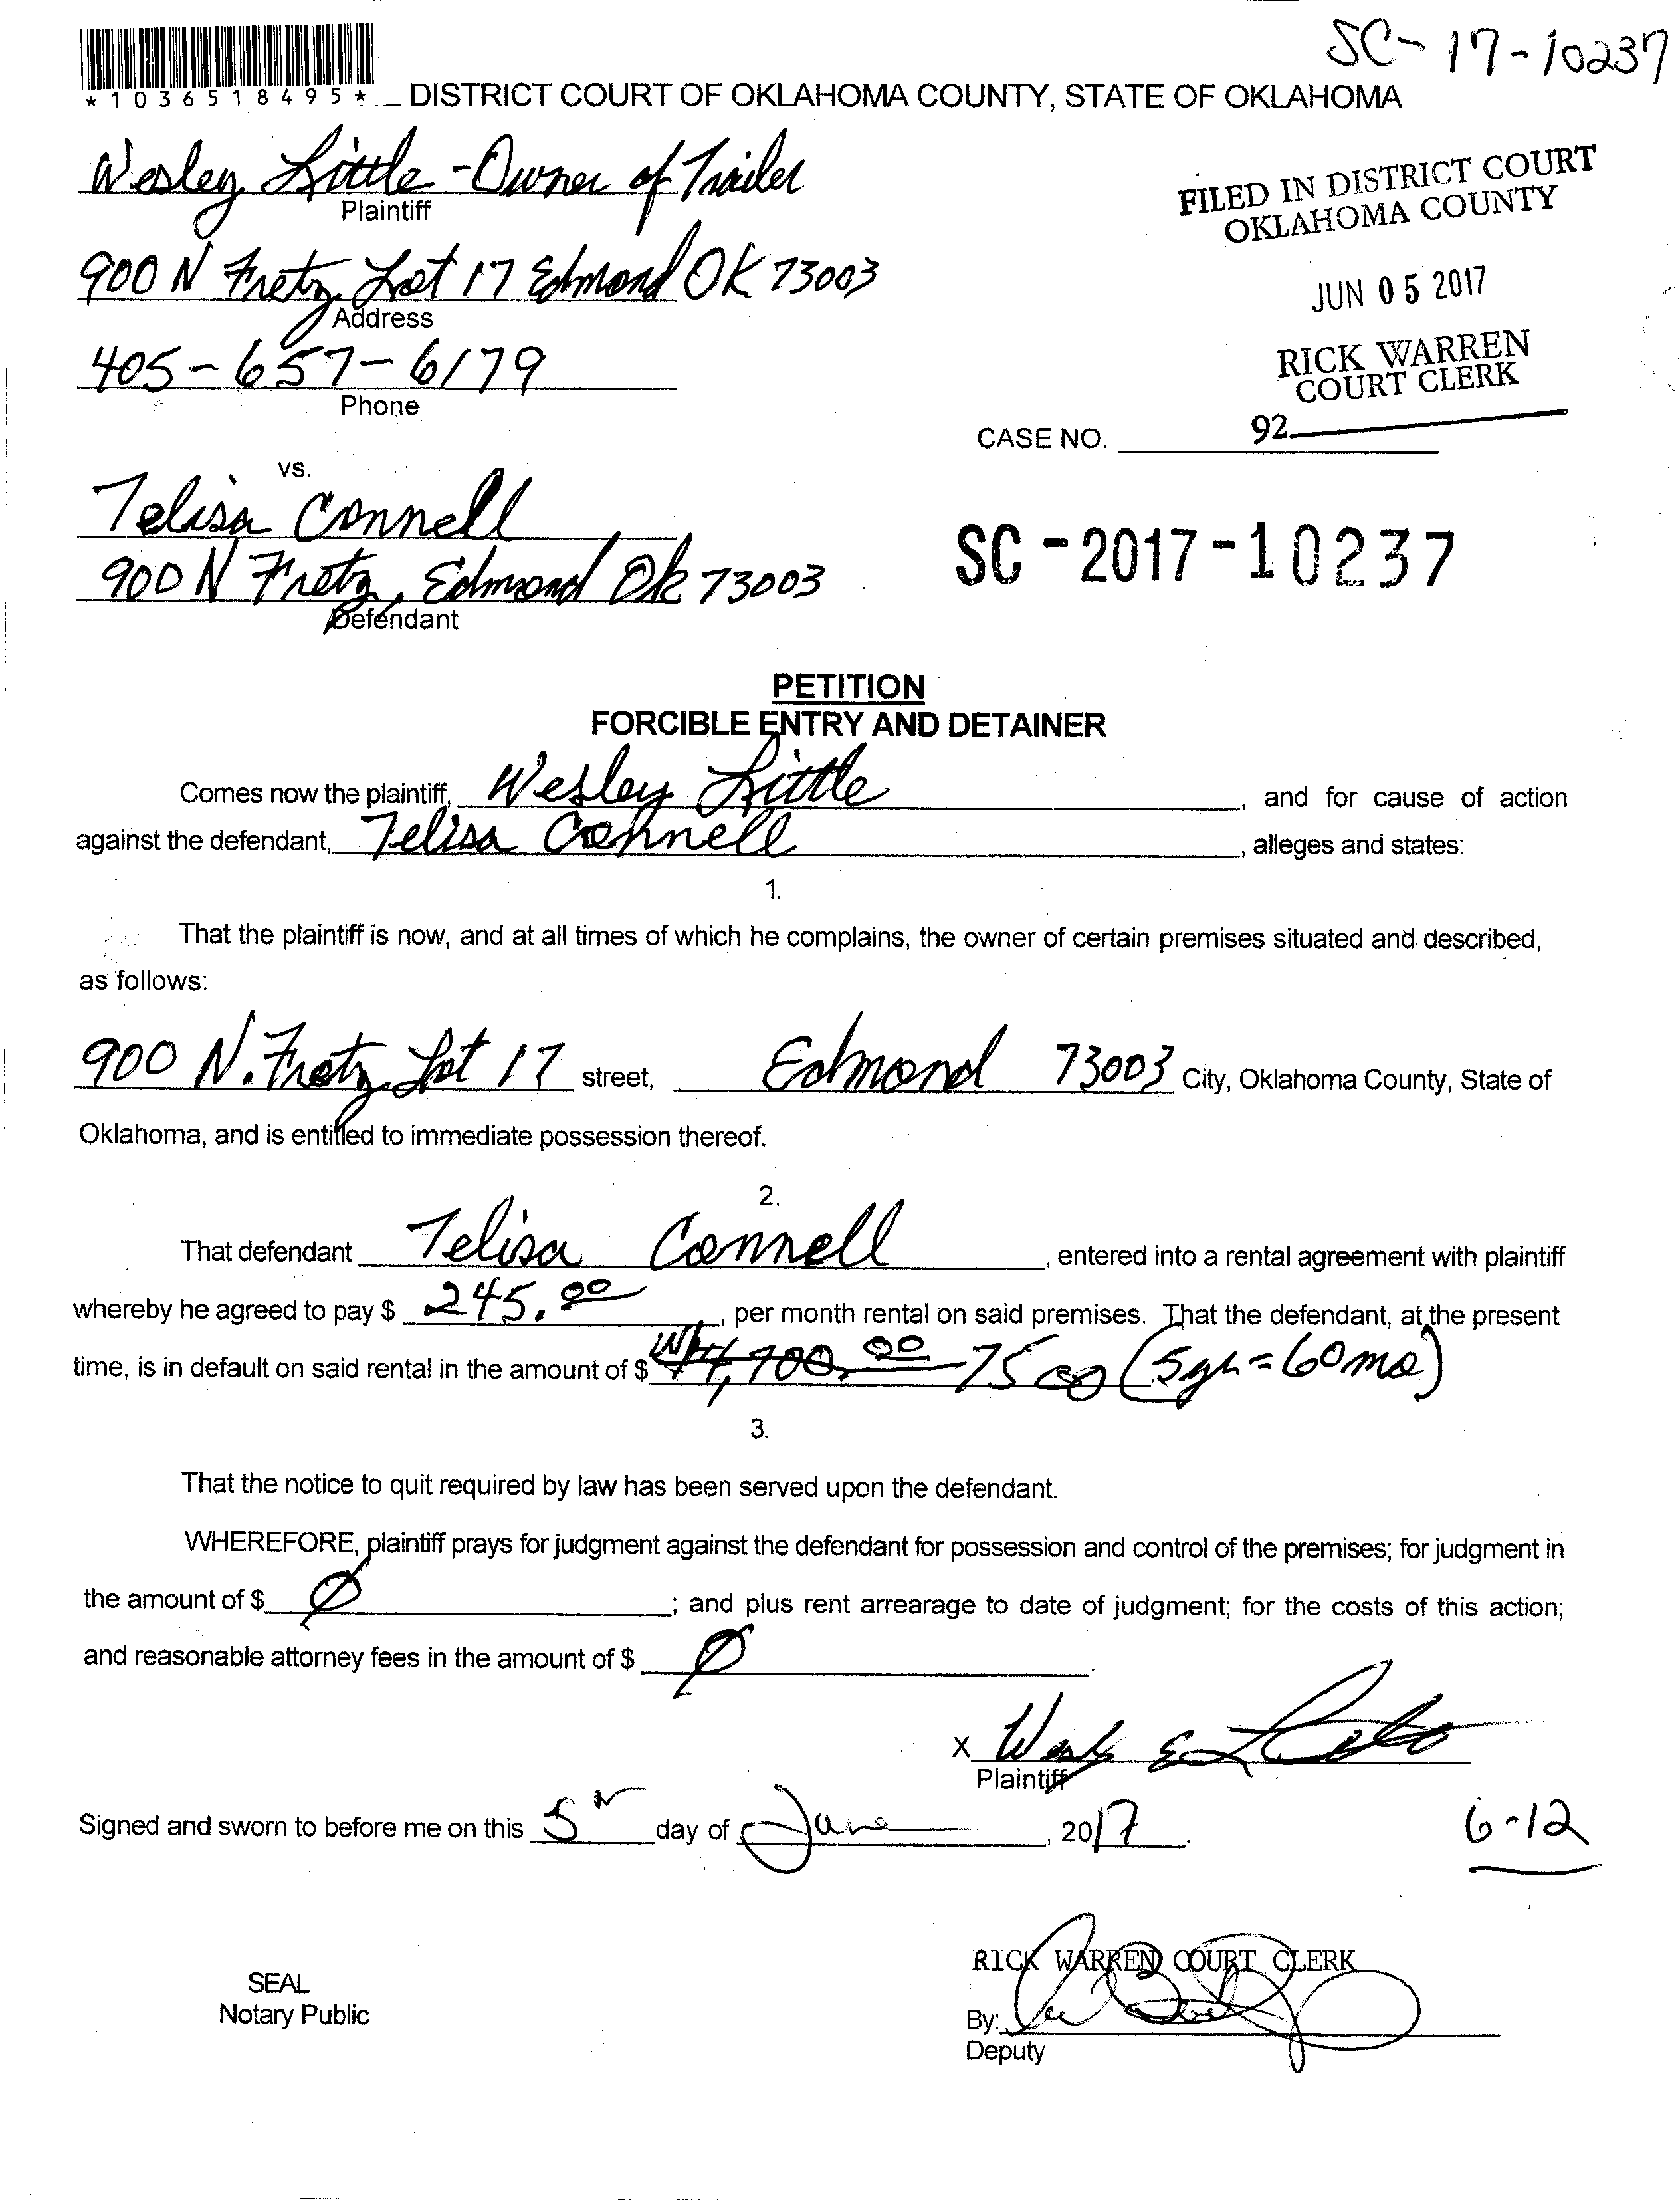 SC-17-10237
*1036518495*
DISTRICT COURT OF OKLAHOMA COUNTY, STATE OF OKLAHOMA
Wesley Little - Owner of Trailer
Plaintiff
FILED IN DISTRICT COURT
OKLAHOMA COUNTY
900 N Fretz Lot 17 Edmond OK 73003
Address
JUN 05 2017
405-657-6179
Phone
RICK WARREN
COURT CLERK
CASE NO. 92
vs.
Telisa Connell
900 N Fretz, Edmond Ok 73003
Defendant
SC-2017-10237
PETITION
FORCIBLE ENTRY AND DETAINER
Comes now the plaintiff, Wesley Little, and for cause of action
against the defendant, Telisa Connell, alleges and states:
1.
That the plaintiff is now, and at all times of which he complains, the owner of certain premises situated and described,
as follows:
900 N. Fretz Lot 17 street, Edmond 73003 City, Oklahoma County, State of
Oklahoma, and is entitled to immediate possession thereof.
2.
That defendant Telisa Connell, entered into a rental agreement with plaintiff
whereby he agreed to pay $ 245.00, per month rental on said premises. That the defendant, at the present
time, is in default on said rental in the amount of $ 14,700.00 7500 (5yr=60mo)
3.
That the notice to quit required by law has been served upon the defendant.
WHEREFORE, plaintiff prays for judgment against the defendant for possession and control of the premises; for judgment in
the amount of $ Ø; and plus rent arrearage to date of judgment; for the costs of this action;
and reasonable attorney fees in the amount of $ Ø.
X
Plaintiff
Signed and sworn to before me on this 5 day of June, 2017.
6-12
RICK WARREN COURT CLERK
SEAL
Notary Public
By:
Deputy